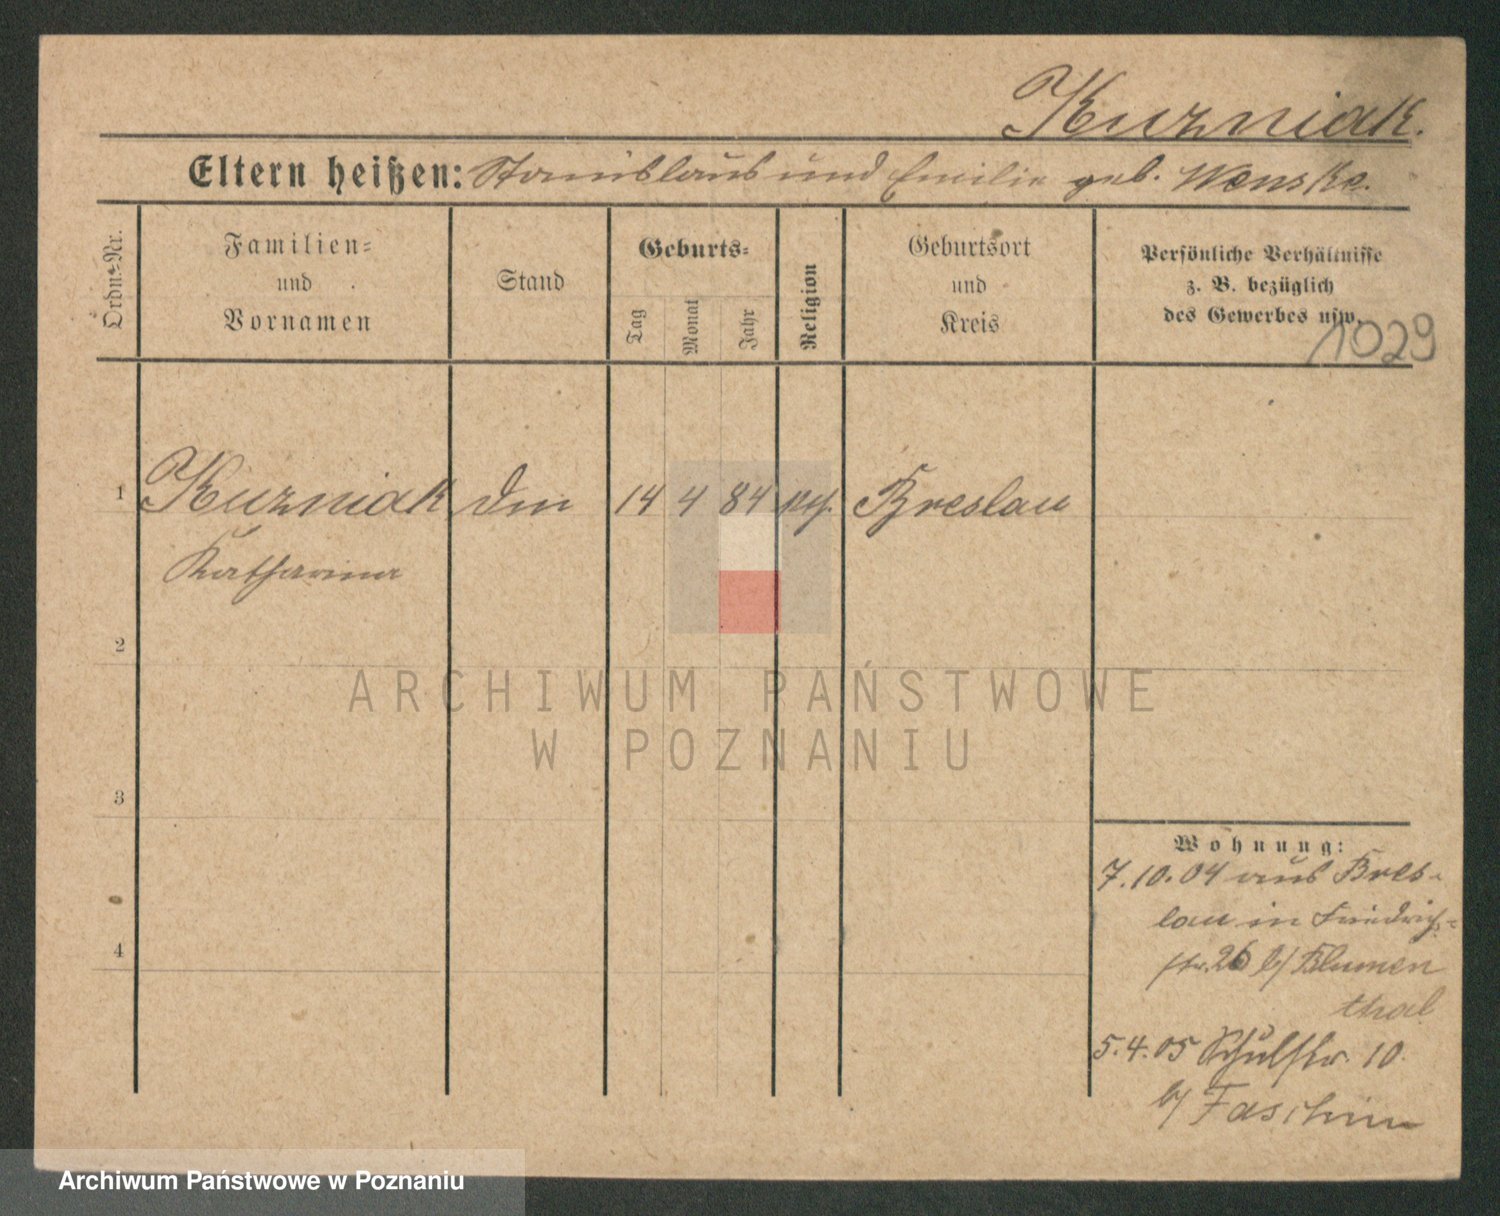 Kuzniak.
Eltern heißen: Stanislaus und Emilie geb. Wenske.
Ordn.-Nr.
Familien-
und
Vornamen
Stand
Geburts-
Tag
Monat
Jahr
Religion
Geburtsort
und
Kreis
Persönliche Verhältnisse
z. B. bezüglich
des Gewerbes usw.
1029
1 Kuzniak 14 4 84 Breslau
Katharina
2
3
4
Wohnung:
7.10.04 aus Bres-
lau in Friedrich-
str. 26 b/ Blumen
thal
5.4.05 Schulstr. 10.
b/
ARCHIWUM PAŃSTWOWE
W POZNANIU
Archiwum Państwowe w Poznaniu